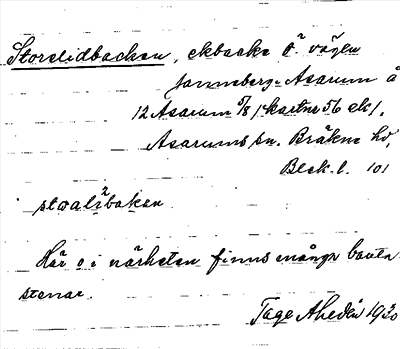 Storelidbacken, ekbacke ö. vägen
Janneberg-Asarum å
12 Asarum 5/8 (kartnr 56 ek).
Asarums sn. Bräkne hd,
Blek. l. 101
stoalibaken
Här o i närheten finns många bauta-
stenar.
Tage Ahedén 1930